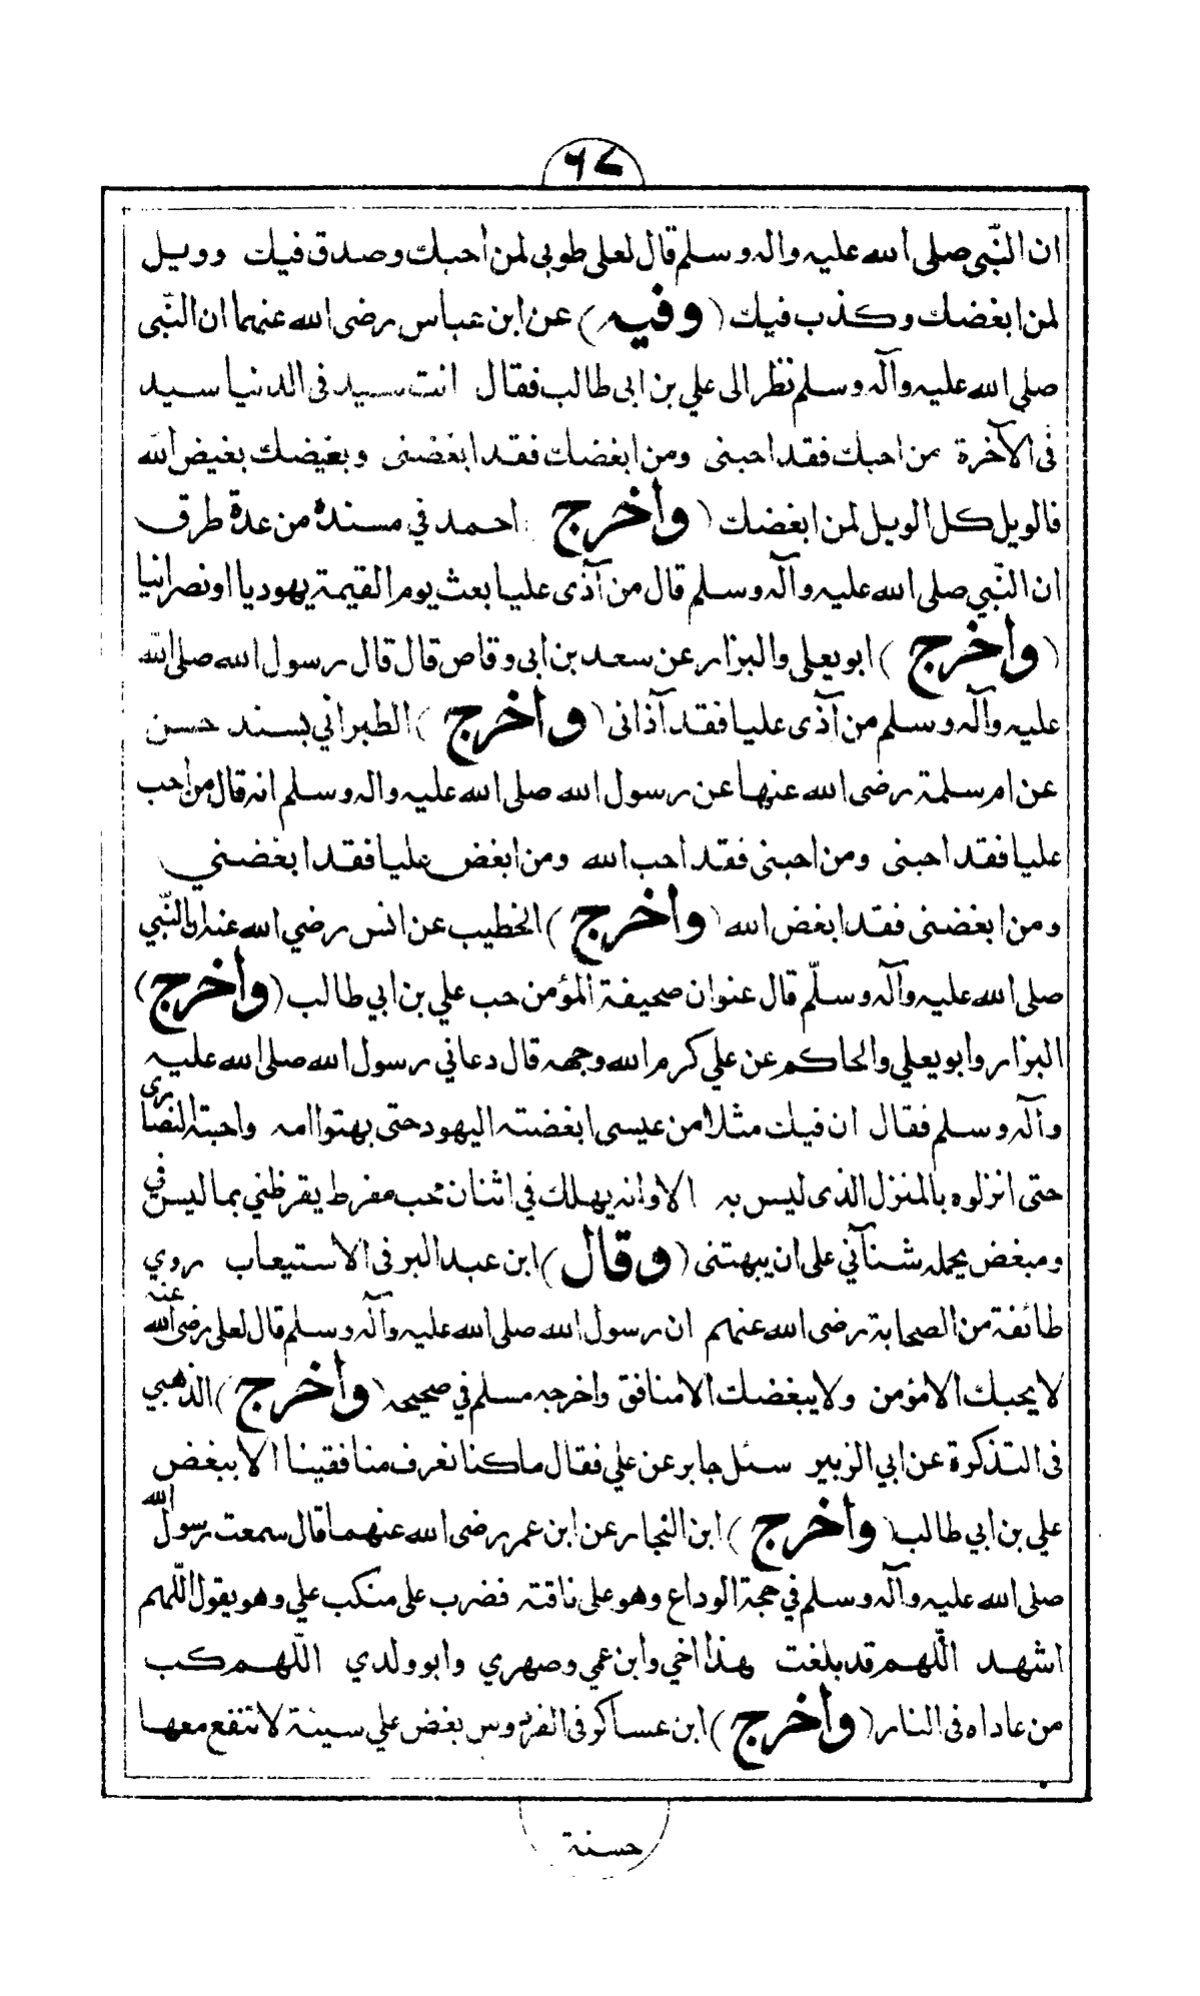 ٦٧
ان النّبي صلى الله عليه واله وسلم قال لعلى طوبى لمن أحبك وصدق فيك وويل
لمن ابغضك وكذب فيك (وفيه) عن ابن عباس رضى الله عنهما ان النّبى
صلى الله عليه وآله وسلم نظر الى علي بن ابى طالب فقال انت سيد فى الدنيا سيد
فى الآخرة من احبك فقد احبنى ومن ابغضك فقد ابغضنى وبغيضك بغيض الله
فالويل كل الويل لمن ابغضك (وأخرج احمد في مسنده من عدة طرق
ان النّبي صلى الله عليه وآله وسلم قال من آذى عليا بعث يوم القيمة يهوديا او نصرانيا
(وأخرج) ابو يعلى والبزار عن سعد بن ابى وقاص قال قال رسول الله صلى الله
عليه وآله وسلم من آذى عليا فقد آذانى (وأخرج) الطبراني بسند حسن
عن ام سلمة رضى الله عنها عن رسول الله صلى الله عليه واله وسلم انه قال من احب
عليا فقد احبنى ومن احبنى فقد احب الله ومن ابغض عليا فقد ابغضني
ومن ابغضنى فقد ابغض الله (وأخرج) الخطيب عن انس رضي الله عنه ان النّبي
صلى الله عليه وآله وسلّم قال عنوان صحيفة المؤمن حب علي بن ابي طالب (وأخرج)
البزار وابو يعلي والحاكم عن علي كرم الله وجهه قال دعاني رسول الله صلى الله عليه
وآله وسلم فقال ان فيك مثلا من عيسى ابغضته اليهود حتى بهتوا امه واحبته النصارى
حتى انزلوه بالمنزل الذى ليس به الا وانه يهلك في اثنان محب مفرط يقرظني بما ليس في
ومبغض يحمله شنآني على ان يبهتنى (وقال) ابن عبد البر فى الاستيعاب روي
طائفة من الصحابة رضى الله عنهم ان رسول الله صلى الله عليه وآله وسلم قال لعلى رضى الله عنه
لا يحبك الا مؤمن ولا يبغضك الا منافق واخرجه مسلم في صحيحه (وأخرج) الذهبي
فى التذكرة عن ابي الزبير سئل جابر عن علي فقال ما كنا نعرف منافقينا الا ببغض
علي بن ابي طالب (وأخرج) ابن النجار عن ابن عمر رضى الله عنهما قال سمعت رسول الله
صلى الله عليه وآله وسلم في حجة الوداع وهو على ناقته فضرب على منكب علي وهو يقول اللّهم
اشهد اللّهم قد بلغت هذا اخي وابن عمي وصهري وابو ولدي اللّهم كب
من عاداه فى النار (وأخرج) ابن عساكر فى الفردوس بغض علي سيئة لا تنفع معها
حسنة